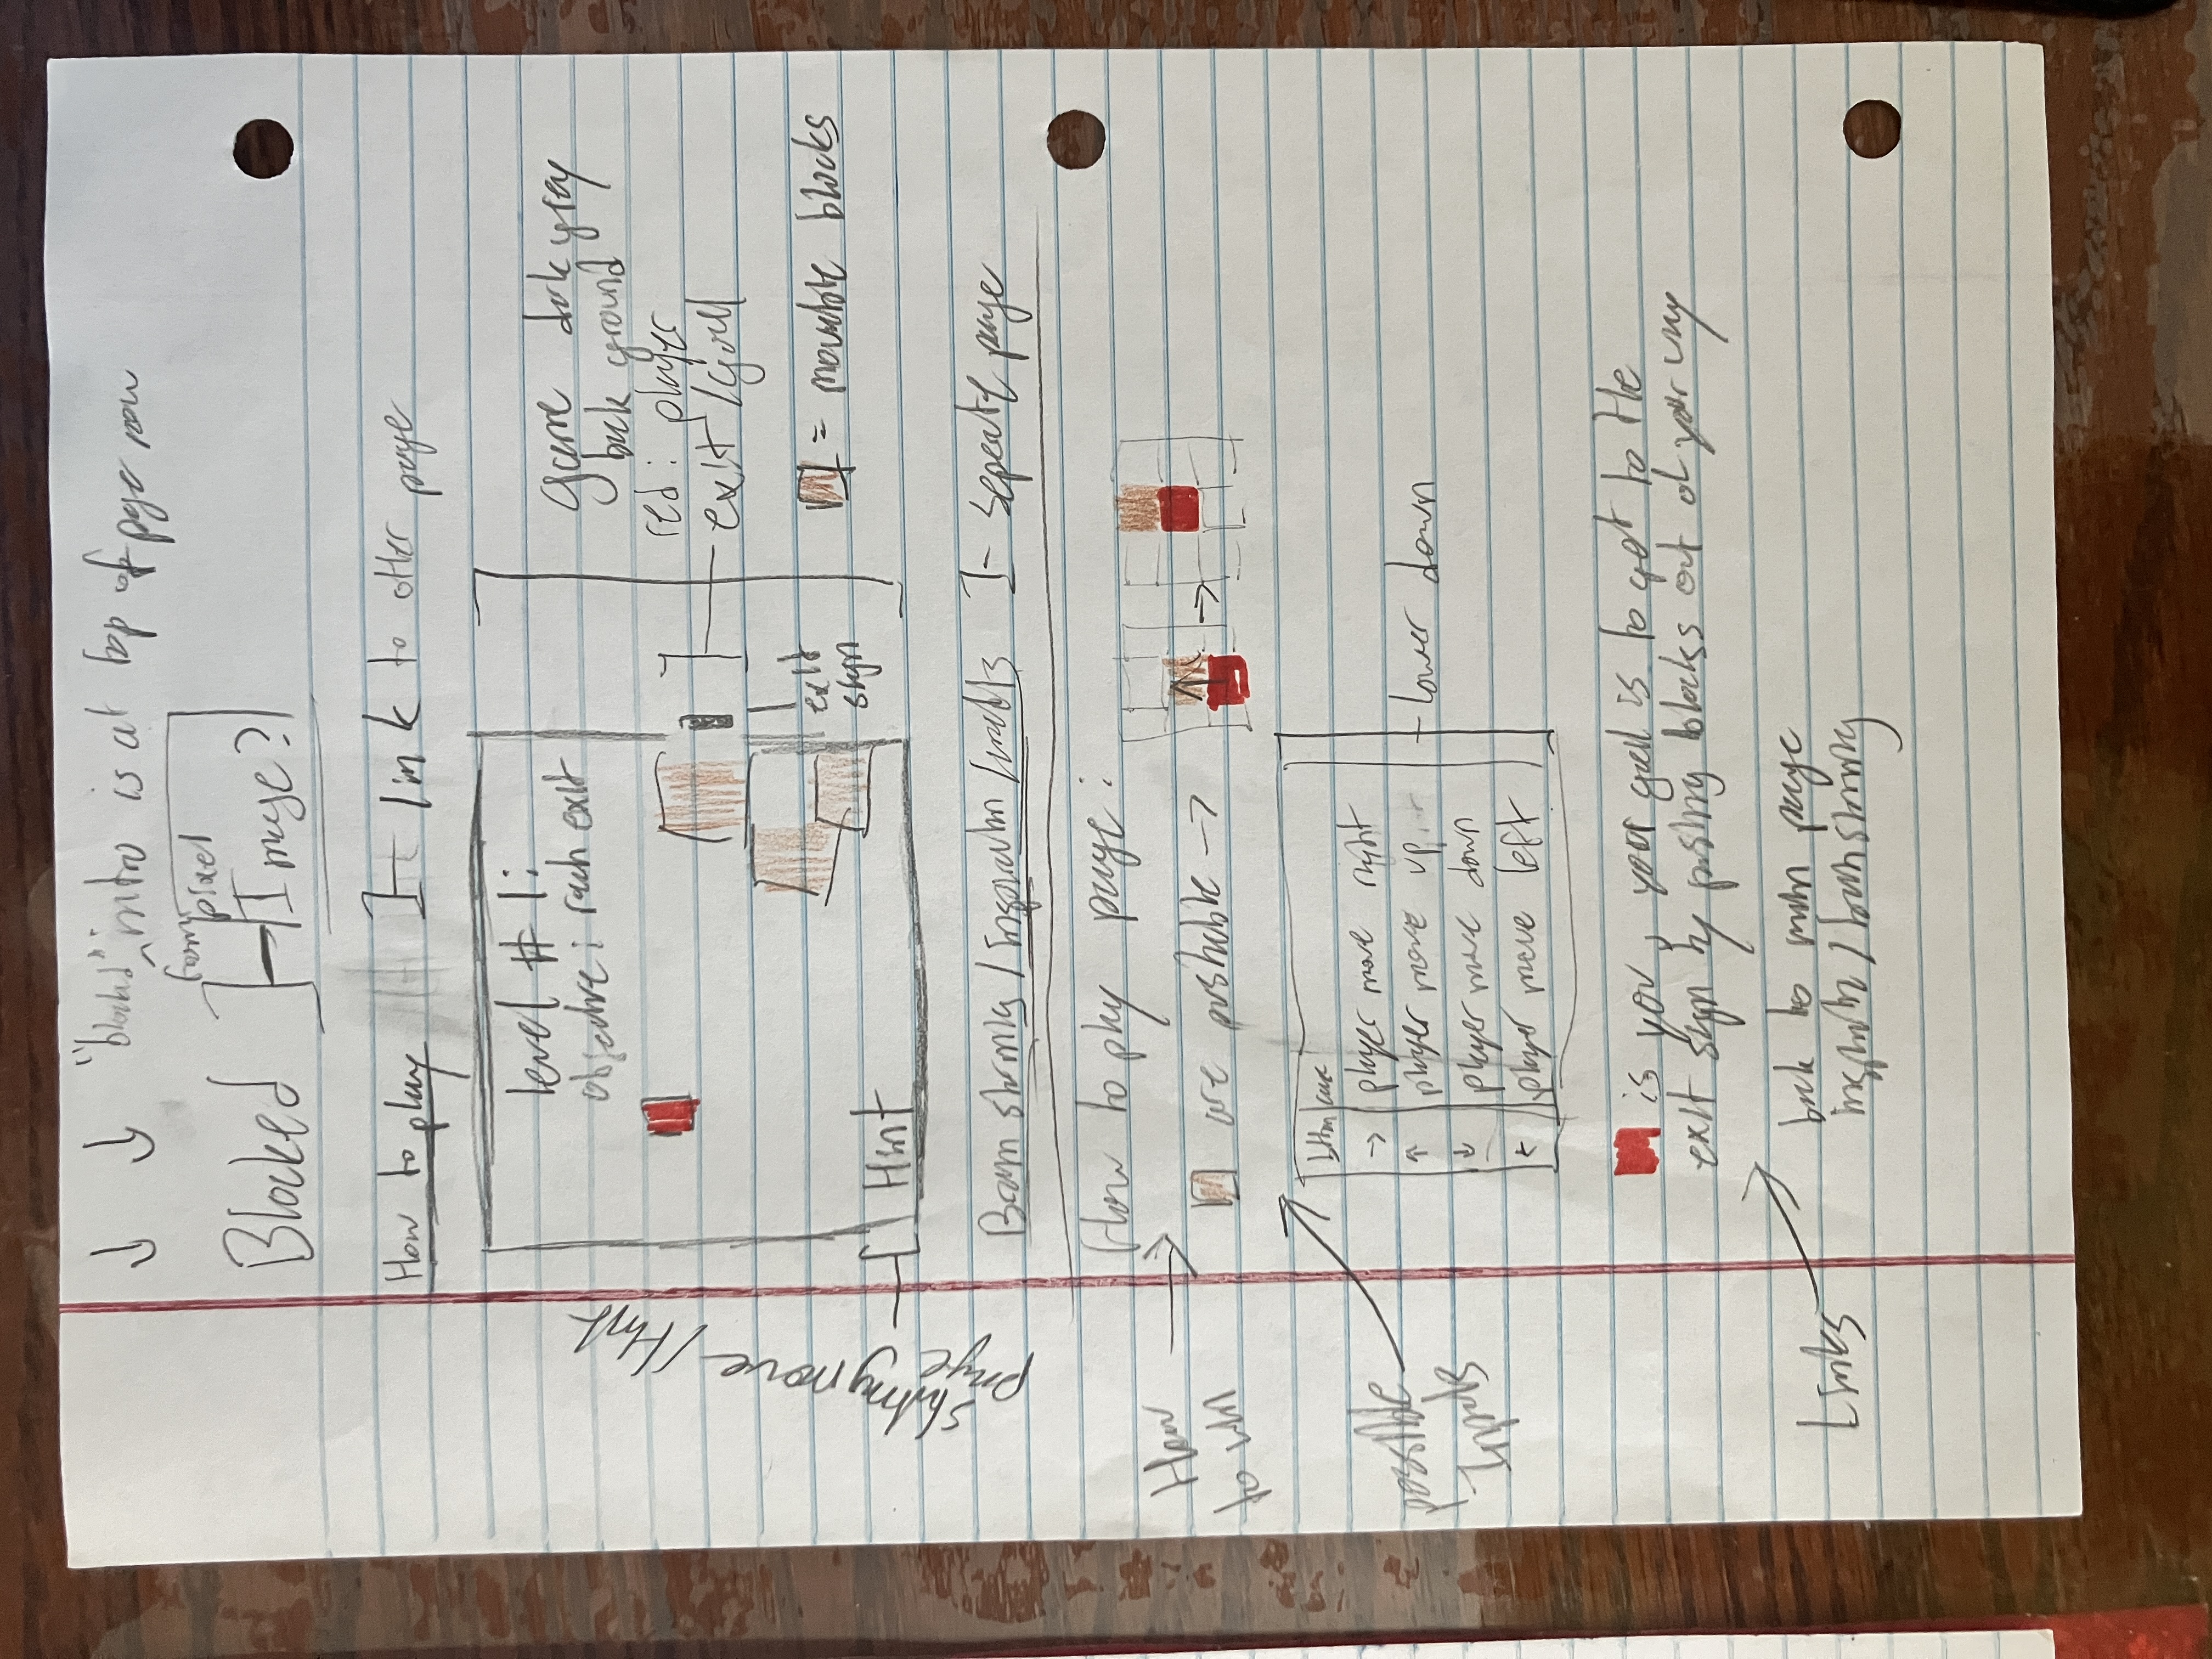 "blocked" intro is at top of page now
form
Blocked
pixel
Image?
How to play
link to other page
level # 1:
objective: reach exit
game dark grey
back ground
red: player
exit/goal
exit
sign
= movable blocks
Hint
move/Hint
page
Brain storming/Inspiration/credits
seperate page
How to play page:
How
to win
are pushable
player move right
player move up
player move down
player move left
lower down
possible
Inputs
is you, your goal is to get to the
exit sign by pushing blocks out of your way
Links
back to main page